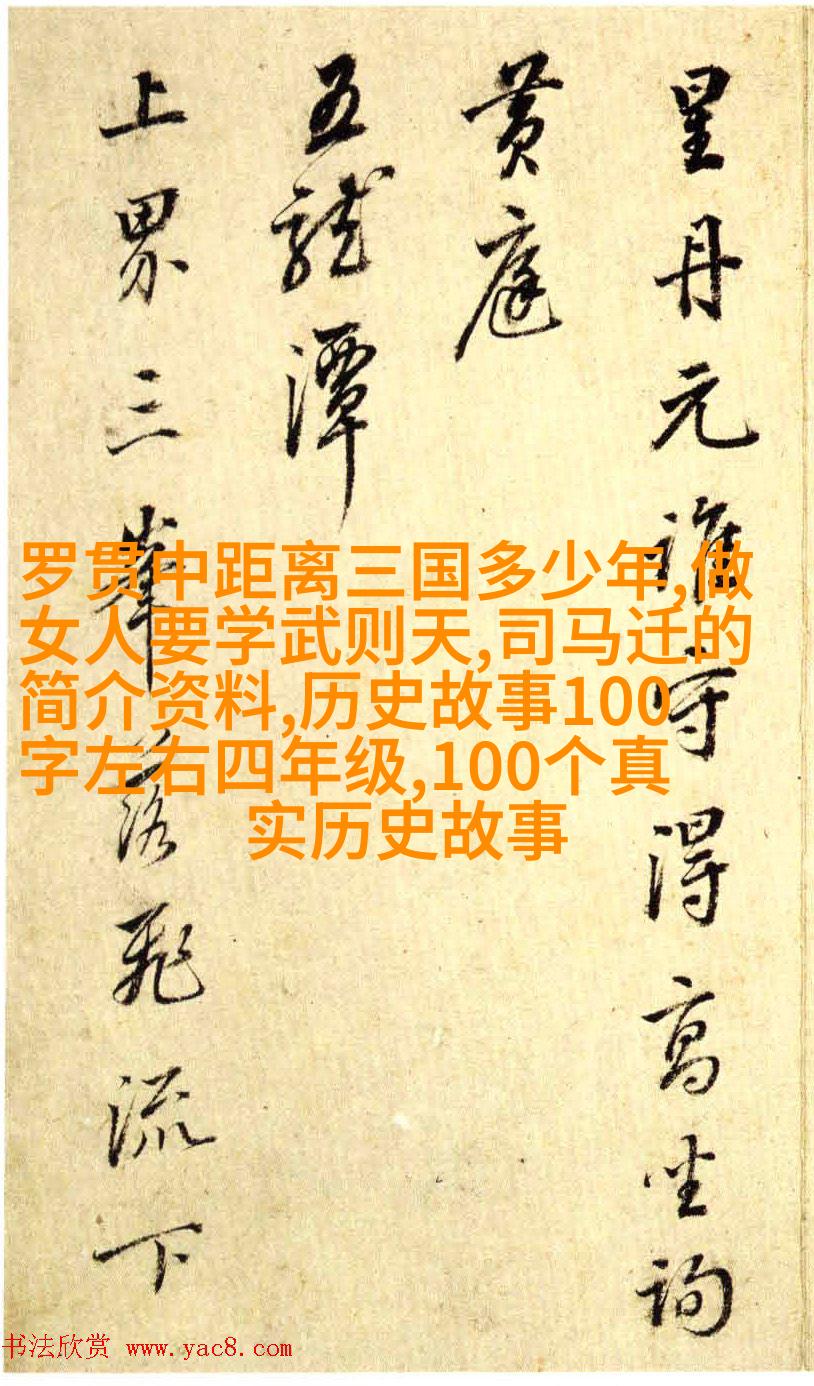 星丹元谁守得高坐詢
黄庭
五龍潭
上界三峯落飛流下
罗贯中距离三国多少年,做
女人要学武则天,司马迁的
简介资料,历史故事100
字左右四年级,100个真
实历史故事
书法欣赏 www.yac8.com